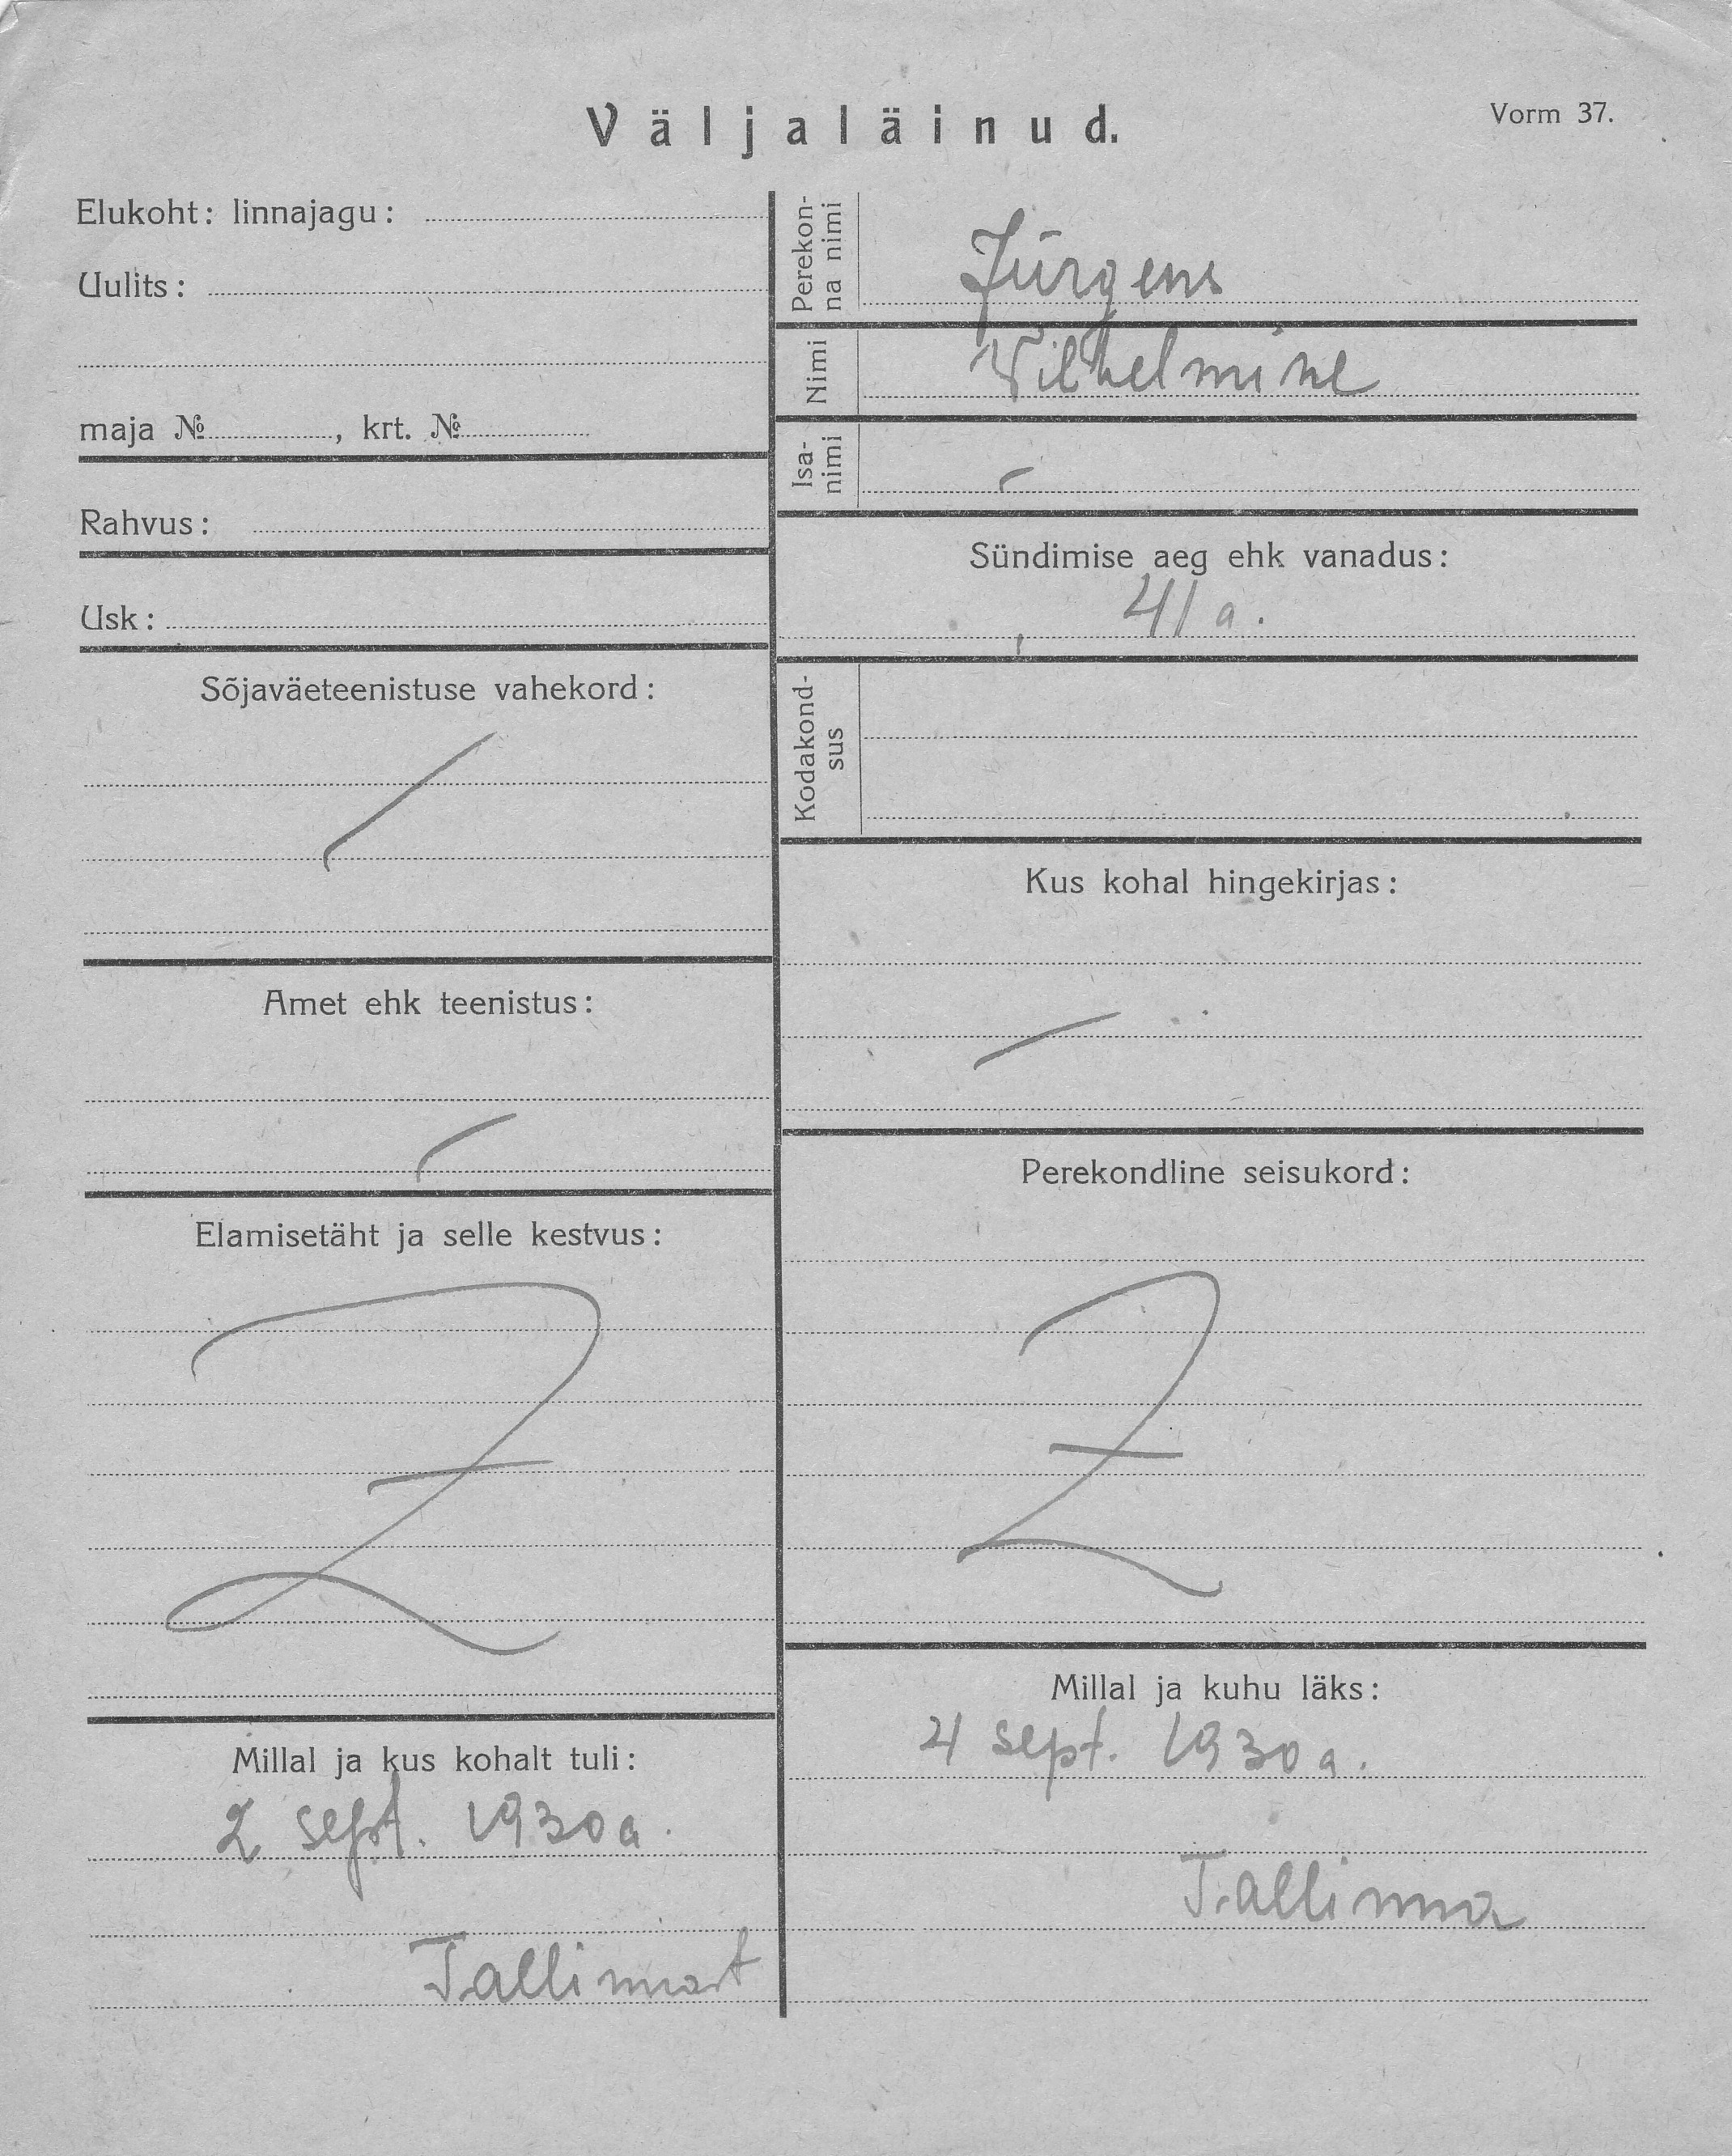 Väljaläinud.
Vorm 37.
Elukoht: linnajagu:
Uulits:
maja №, krt. №
Rahvus:
Usk:
Sõjaväeteenistuse vahekord:
Amet ehk teenistus:
Elamisetäht ja selle kestvus:
Millal ja kus kohalt tuli:
2 sept. 1930 a.
Tallinnast
Perekon-
na nimi
Jürgens
Nimi
Vilhelmine
Isa-
nimi
Sündimise aeg ehk vanadus:
41 a.
Kodakond-
sus
Kus kohal hingekirjas:
Perekondline seisukord:
Millal ja kuhu läks:
4 sept. 1930 a.
Tallinna